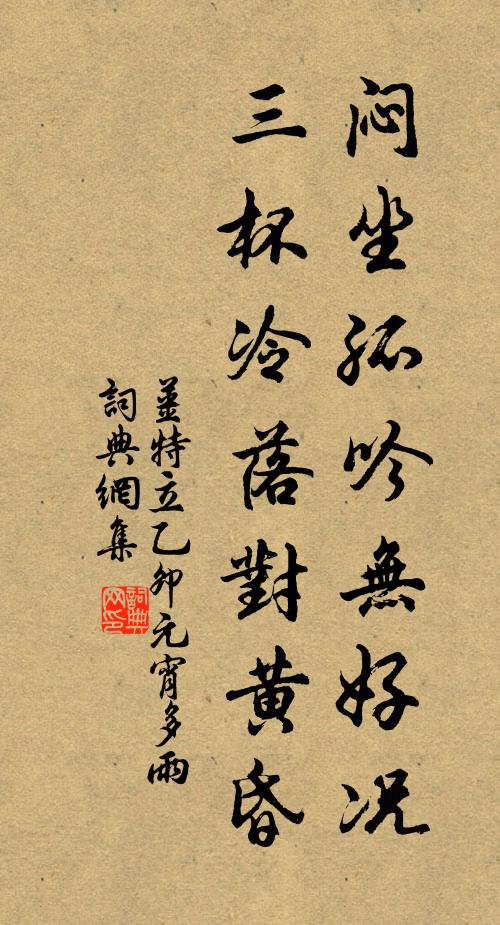 闷坐孤吟無好况
三杯冷落對黄昏
薑特立乙卯元宵多雨
詞典網集
詞典网印